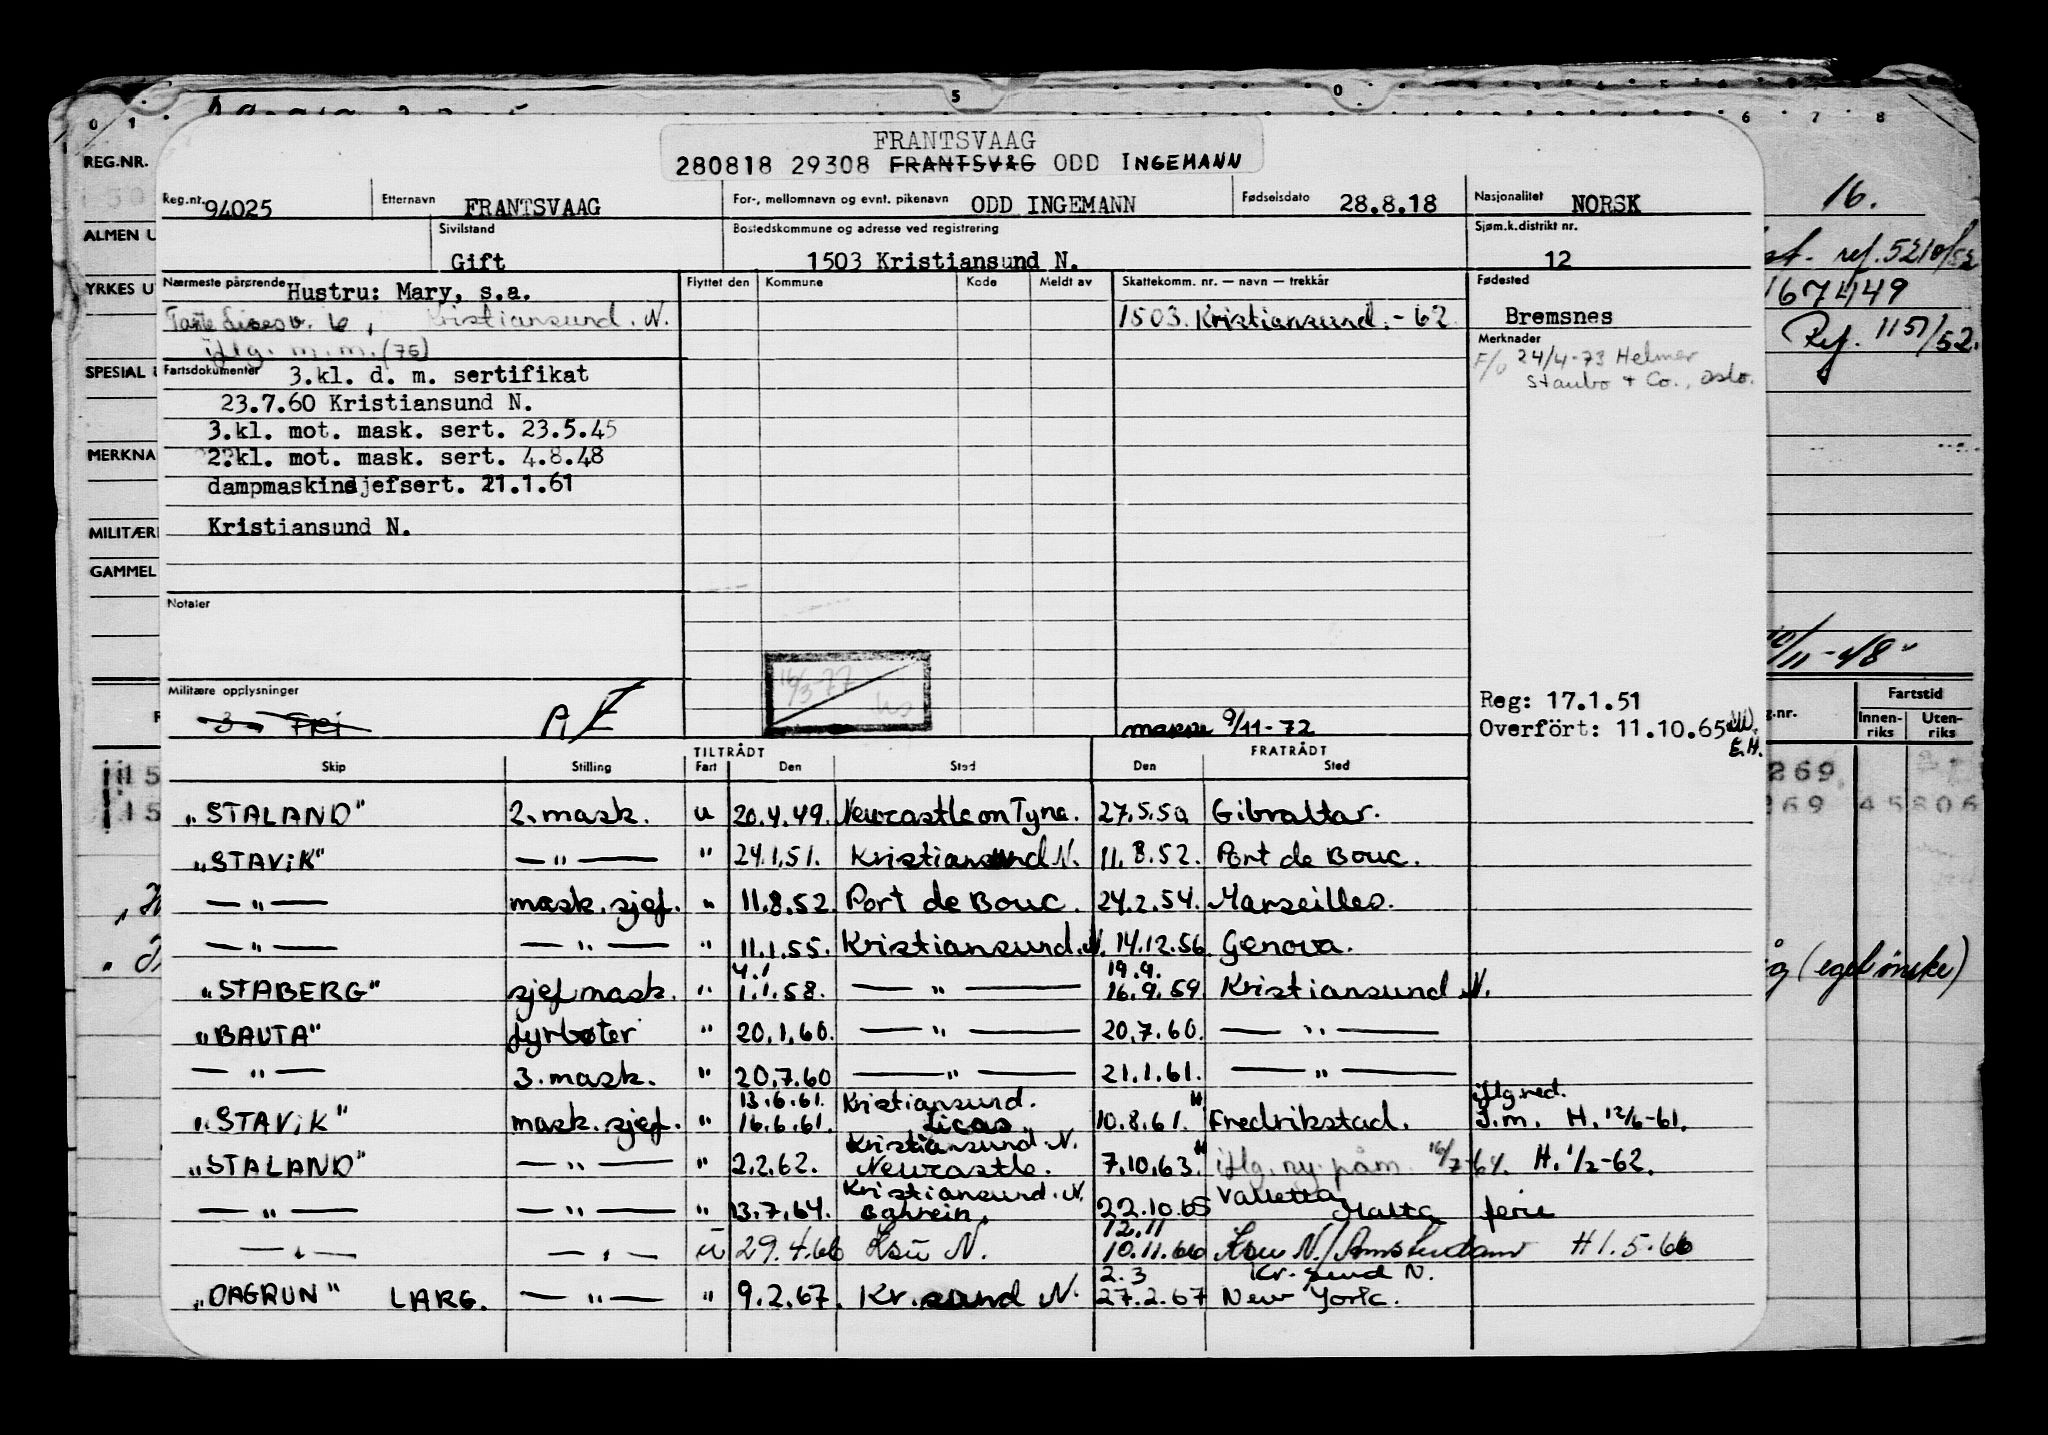 5 0
0 1 6 7 8
FRANTSVAAG
280818 29308 FRANTSVÅG ODD INGEMANN
REG.NR.
Reg.nr. 94025 Etternavn FRANTSVAAG For-, mellomnavn og evnt. pikenavn ODD INGEMANN Fødselsdato 28.8.18 Nasjonalitet NORSK
16.
ALMEN U
Sivilstand Gift Bostedskommune og adresse ved registrering 1503 Kristiansund N. Sjøm.k.distrikt nr. 12
ref. 5210/52
YRKES U
Nærmeste pårørende Hustru: Mary, s.a. Flyttet den Kommune Kode Meldt av Skattekomm. nr. — navn — trekkår Fødested
167449
Kristiansund. N. 1503. Kristiansund. - 62 Bremsnes
Ref. 1151/52.
iflg. m.m. (75) Merknader
F/o 24/4-73 Helmer
Staubo + Co., Oslo.
SPESIAL
Fartsdokumenter 3.kl. d. m. sertifikat
23.7.60 Kristiansund N.
3.kl. mot. mask. sert. 23.5.45
MERKNA
2.kl. mot. mask. sert. 4.8.48
dampmaskinsjefsert. 21.1.61
MILITÆR
Kristiansund N.
GAMMEL
Notater
/11-48
16/3-77
Militære opplysninger
Fri
marse 9/11-72
Reg: 17.1.51
Overført: 11.10.65
E.H.
g.nr. Fartstid
Innen-riks Uten-riks
TILTRÅDT FRATRÅDT
Skip Stilling Fart Den Sted Den Sted
269
269 45806
"STALAND" 2. mask. u 20.4.49. Newcastle on Tyne. 27.5.50 Gibraltar.
"STAViK" — " — " 24.1.51. Kristiansund N. 11.8.52. Port de Bouc.
— " — mask.sjef. " 11.8.52. Port de Bouc. 24.2.54. Marseilles.
— " — — " — " 11.1.55. Kristiansund. N. 14.12.56 Genova.
(eget ønske)
4.1 19.9.
"STABERG" sjef mask. " 1.1.58. — " — 16.9.59 Kristiansund N.
"BAUTA" fyrbøter " 20.1.60. — " — 20.7.60. — " —
— " — 3. mask. " 20.7.60 — " — 21.1.61. — " —
13.6.61. Kristiansund. iflg. red.
"STAViK" mask. sjef. " 16.6.61. 10.8.61. Fredrikstad. J.m. H. 12/6-61.
Kristiansund N.
"STALAND" — " — " 2.2.62. Newcastle. 7.10.63. iflg. ny. påm. 16/7-64. H. 1/2-62.
Kristiansund. N. Valletta
— " — — " — " 13.7.64. Bahrein. 22.10.65 Malta ferie
12.11
— " — — " — u 29.4.66 Ksu N. 10.11.66 Ksu N./Amsterdam H 1.5.66
2.3 Kr. sund N.
"DAGRUN" LARG. — " — " 9.2.67. Kr. sund N. 27.2.67 New York.